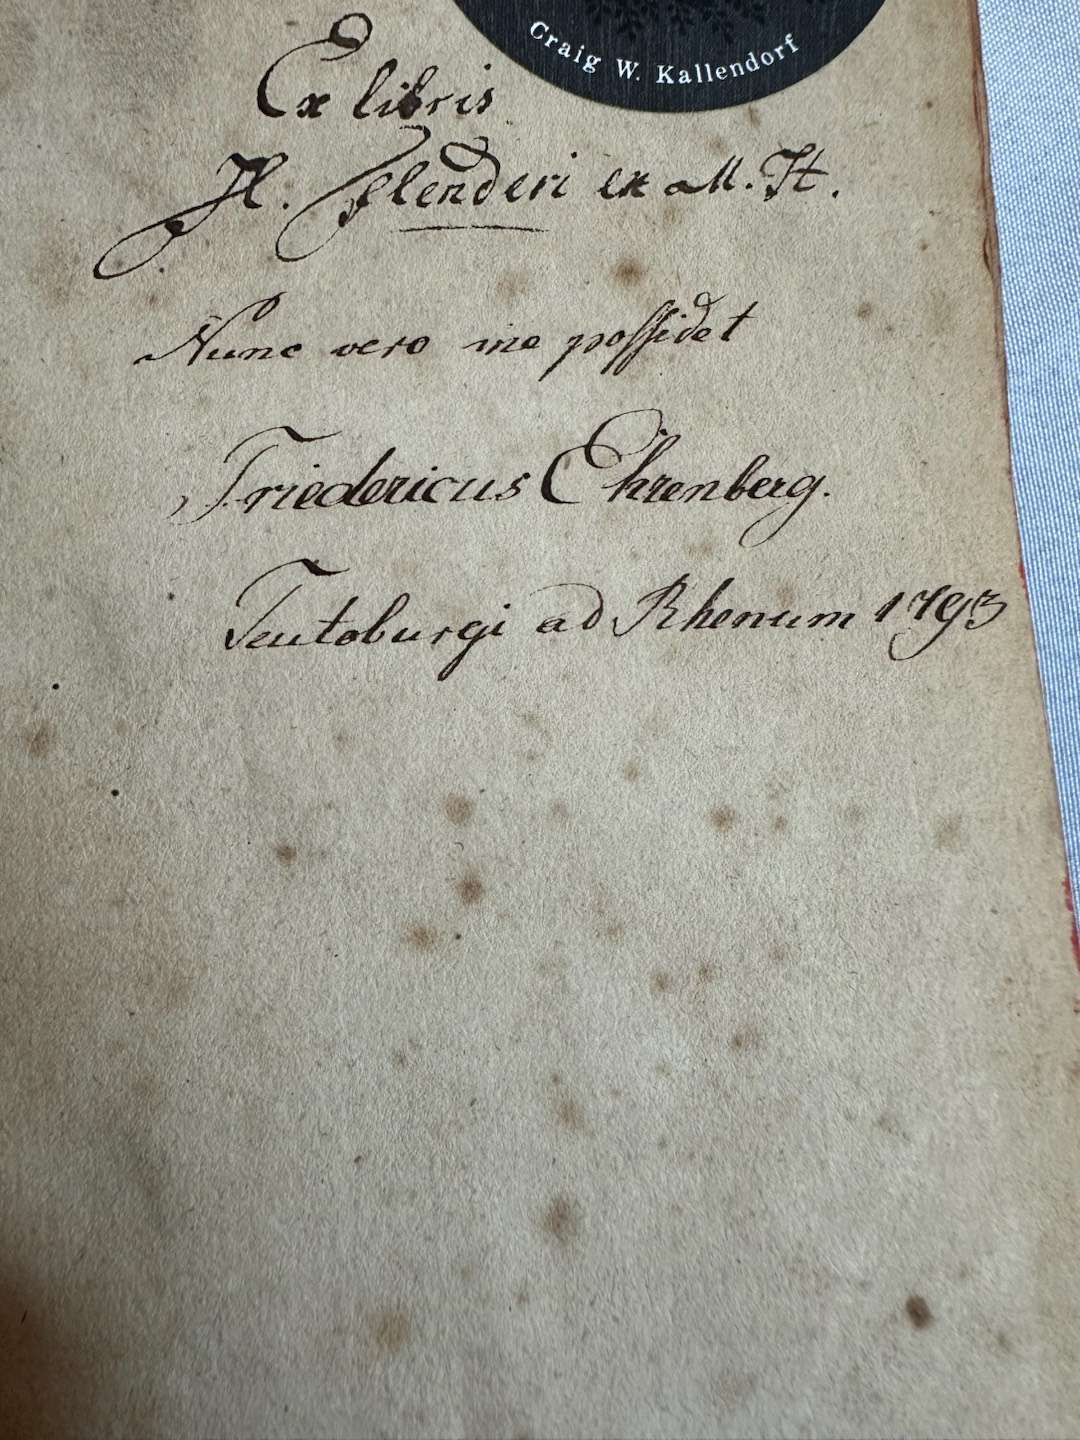 Craig W. Kallendorf
Ex libris
H. Flenderi ex M. H.
Nunc vero me possidet
Friedericus Ehrenberg.
Teutoburgi ad Rhenum 1793